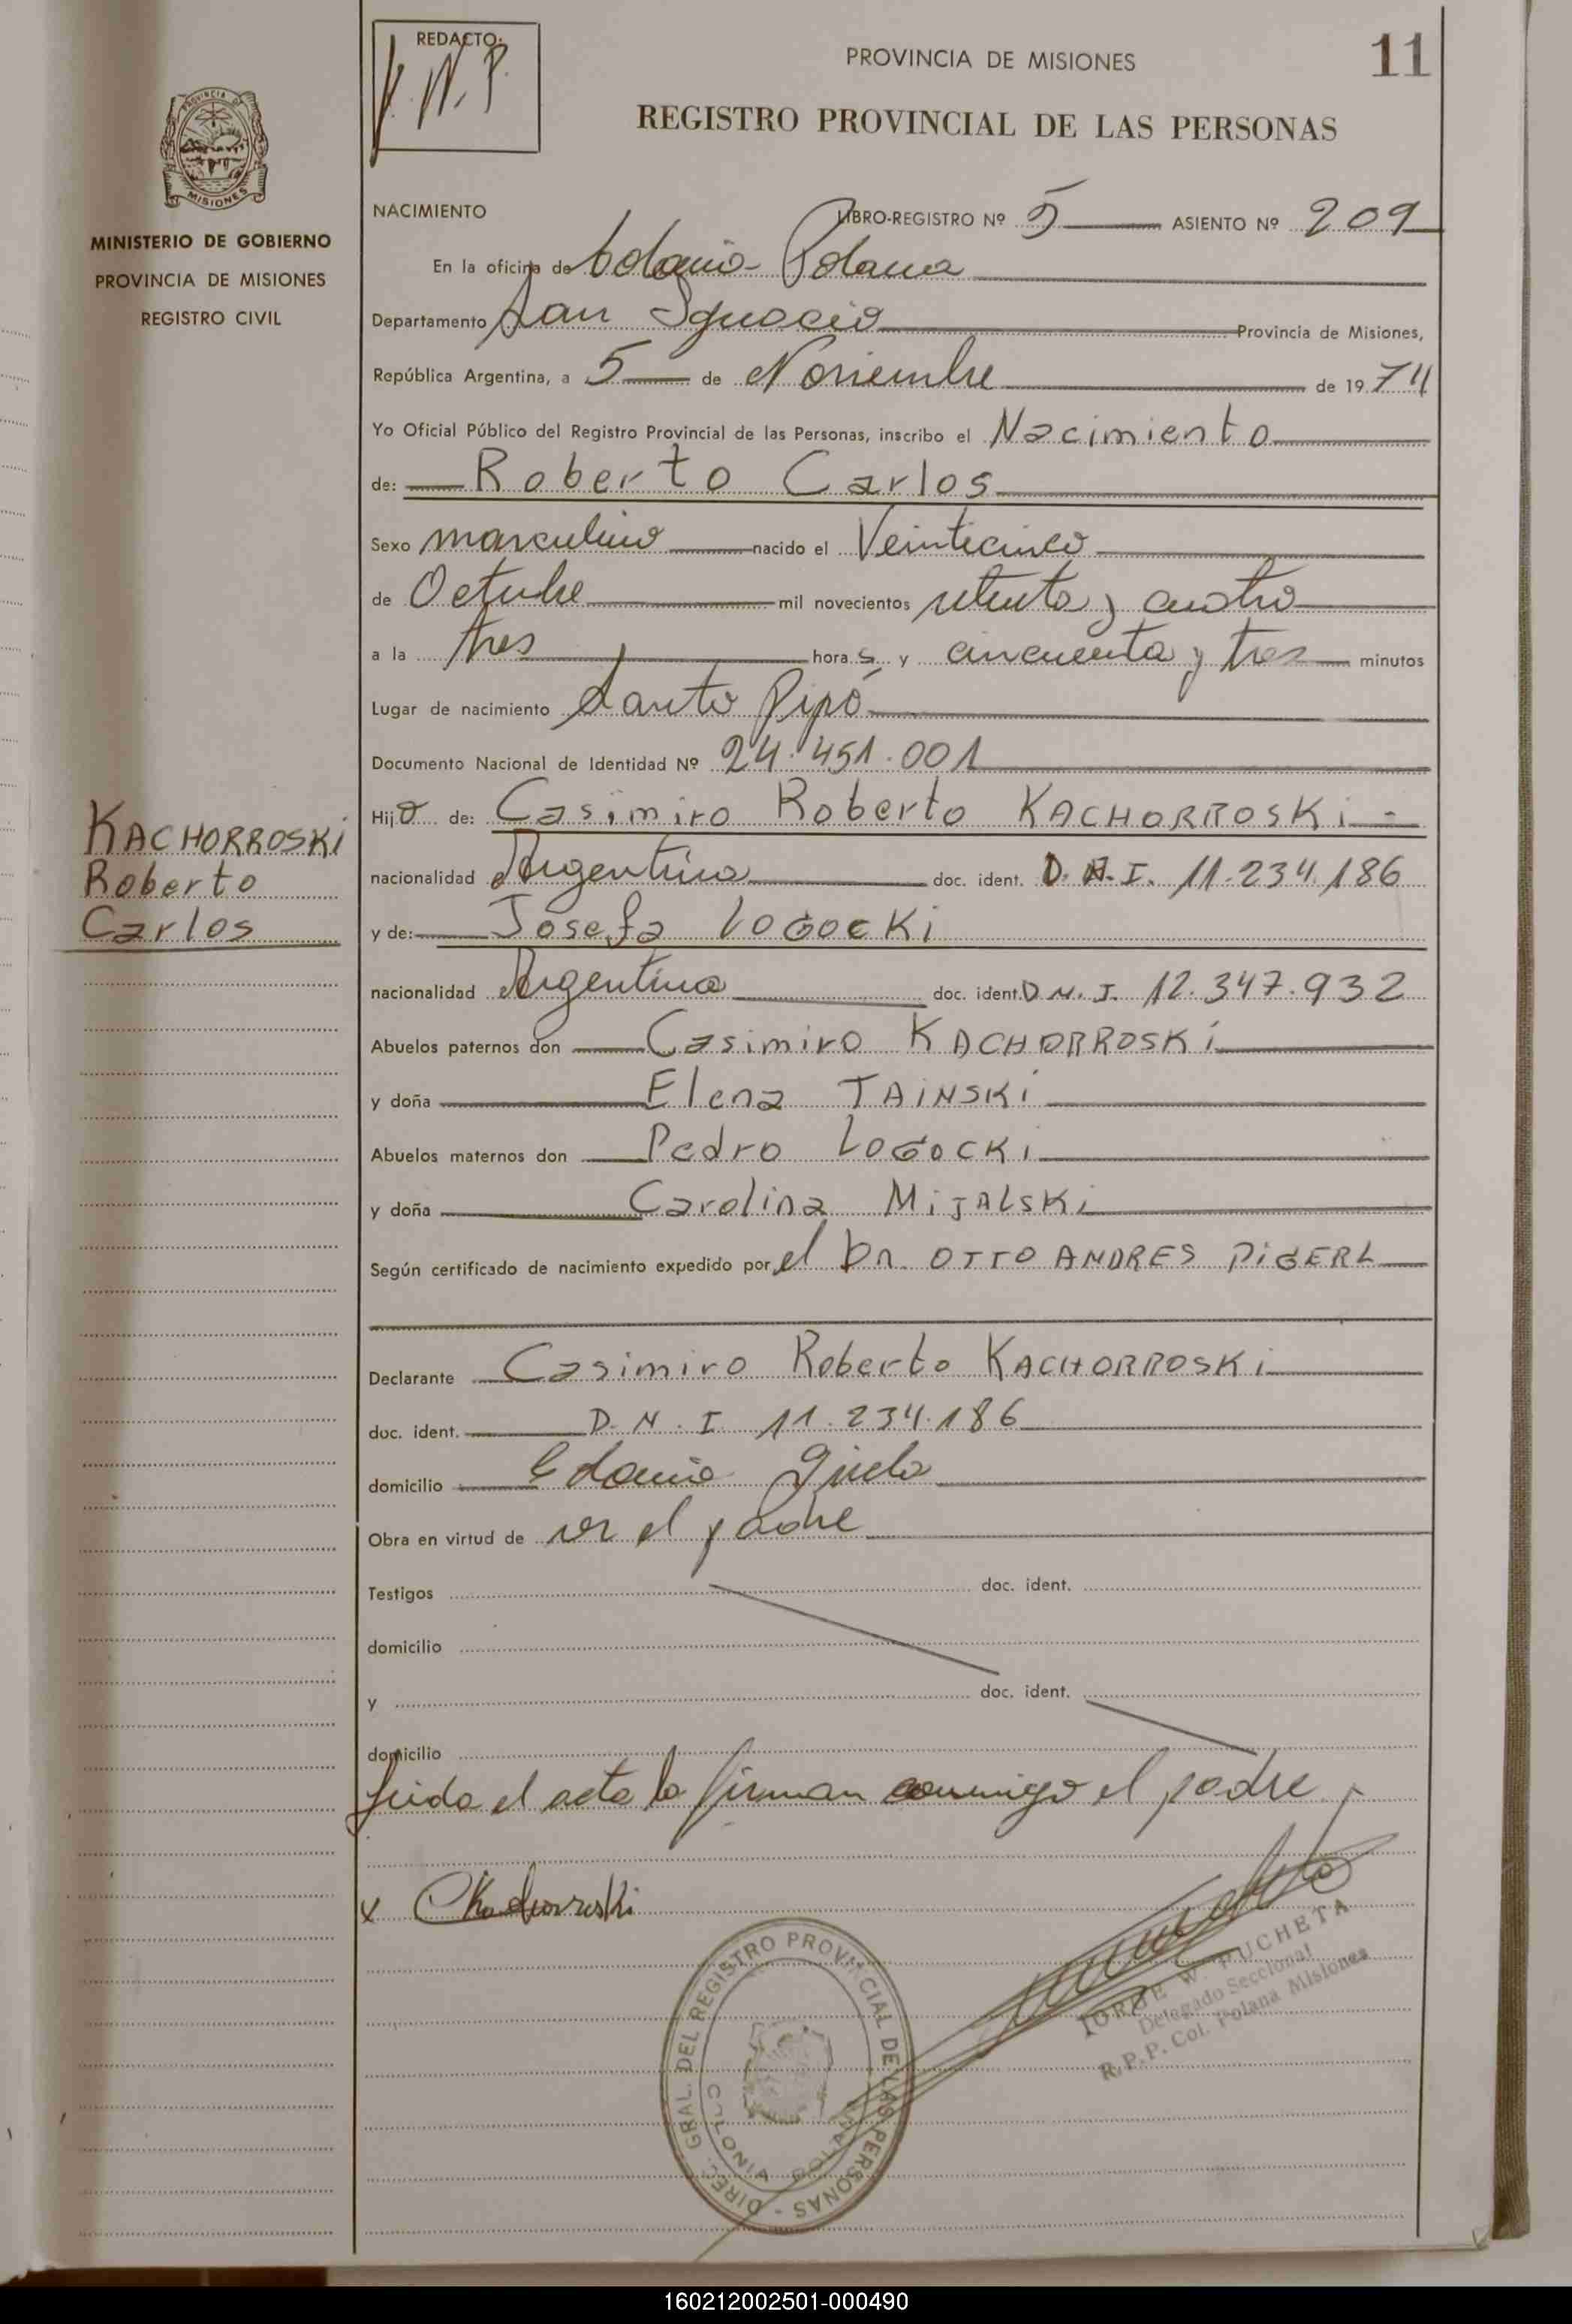 REDACTO:
J. W. P.
PROVINCIA DE MISIONES
11
REGISTRO PROVINCIAL DE LAS PERSONAS
PROVINCIA DE
MISIONES
MINISTERIO DE GOBIERNO
PROVINCIA DE MISIONES
REGISTRO CIVIL
KACHORROSKi
Roberto
Carlos
NACIMIENTO LIBRO-REGISTRO Nº 5 ASIENTO Nº 209
En la oficina de Colonia Polana
Departamento San Ignacio Provincia de Misiones,
República Argentina, a 5 de Noviembre de 1974
Yo Oficial Público del Registro Provincial de las Personas, inscribo el Nacimiento
de: Roberto Carlos
Sexo masculino nacido el Veinticinco
de Octubre mil novecientos setenta y cuatro
a la tres hora s y cincuenta y tres minutos
Lugar de nacimiento Santo Pipó
Documento Nacional de Identidad Nº 24.451.001
Hijo de: Casimiro Roberto KACHORROSKi
nacionalidad Argentina doc. ident. D.N.I. 11.234.186
y de: Josefa LOGOCKi
nacionalidad Argentina doc. ident. D.N.I. 12.347.932
Abuelos paternos don Casimiro KACHORROSKi
y doña Elena TAiNSKi
Abuelos maternos don Pedro LOGOCKi
y doña Carolina MiJALSKi
Según certificado de nacimiento expedido por el Dr. OTTO ANDRES PiGERL
Declarante Casimiro Roberto KACHORROSKi
doc. ident. D.N.I 11.234.186
domicilio Colonia Gisela
Obra en virtud de ser el padre
Testigos doc. ident.
domicilio
y doc. ident.
domicilio
Leida el acta la firman conmigo el padre
x CKachorroski
DIREC. GRAL. DEL REGISTRO PROVINCIAL DE LAS PERSONAS -
COLONIA POLANA
JORGE W. PUCHETA
Delegado Seccional
R.P.P. Col. Polana Misiones
160212002501-000490